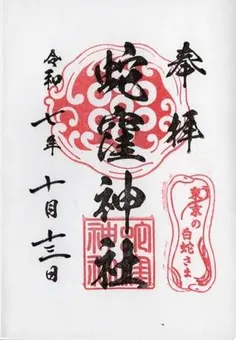 奉拝
東京の
白蛇さま
蛇窪神社
蛇窪
神社
令和七年十月十三日